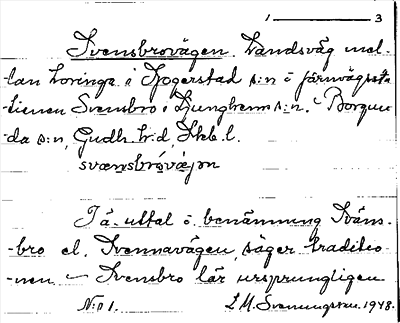 1 ——— 3
Svensbrovägen. Landsväg mel-
lan Loringa i Högstad s:n i järnvägssta-
tionen Svensbro i Ljunghem s:n. – Borgun-
da s:n, Gudh. h:d, Skb. l.
svænsbróvæjən
I ä. uttal o. benämning Sväns-
-bro el. Svennavägen, säger traditio-
-nen – Svensbro lär ursprungligen
N:o 1. L. M. Svenungsson. 1948.